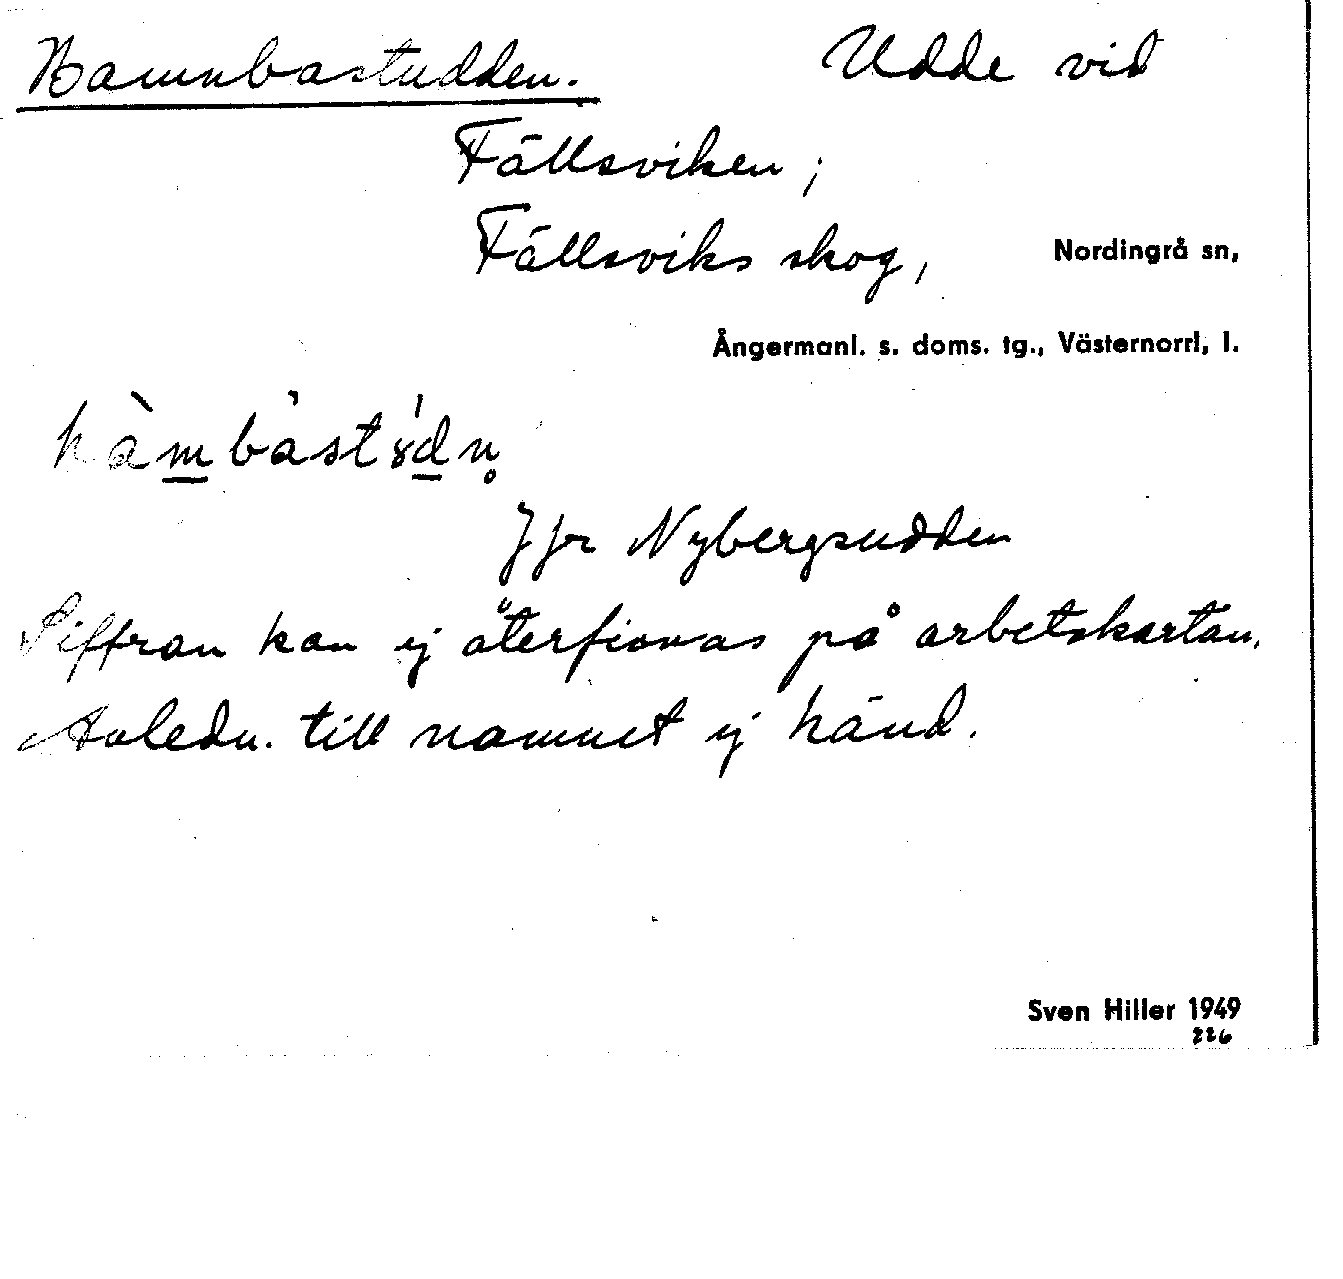 Hamnbastudden. Udde vid
Fällsviken;
Fällsviks skog, Nordingrå sn,
Ångermanl. s. doms. tg., Västernorrl, l.
Jfr Nybergsudden
Siffran kan ej återfinnas på arbetskartan.
Anledn. till namnet ej känd.
Sven Hiller 1949
226